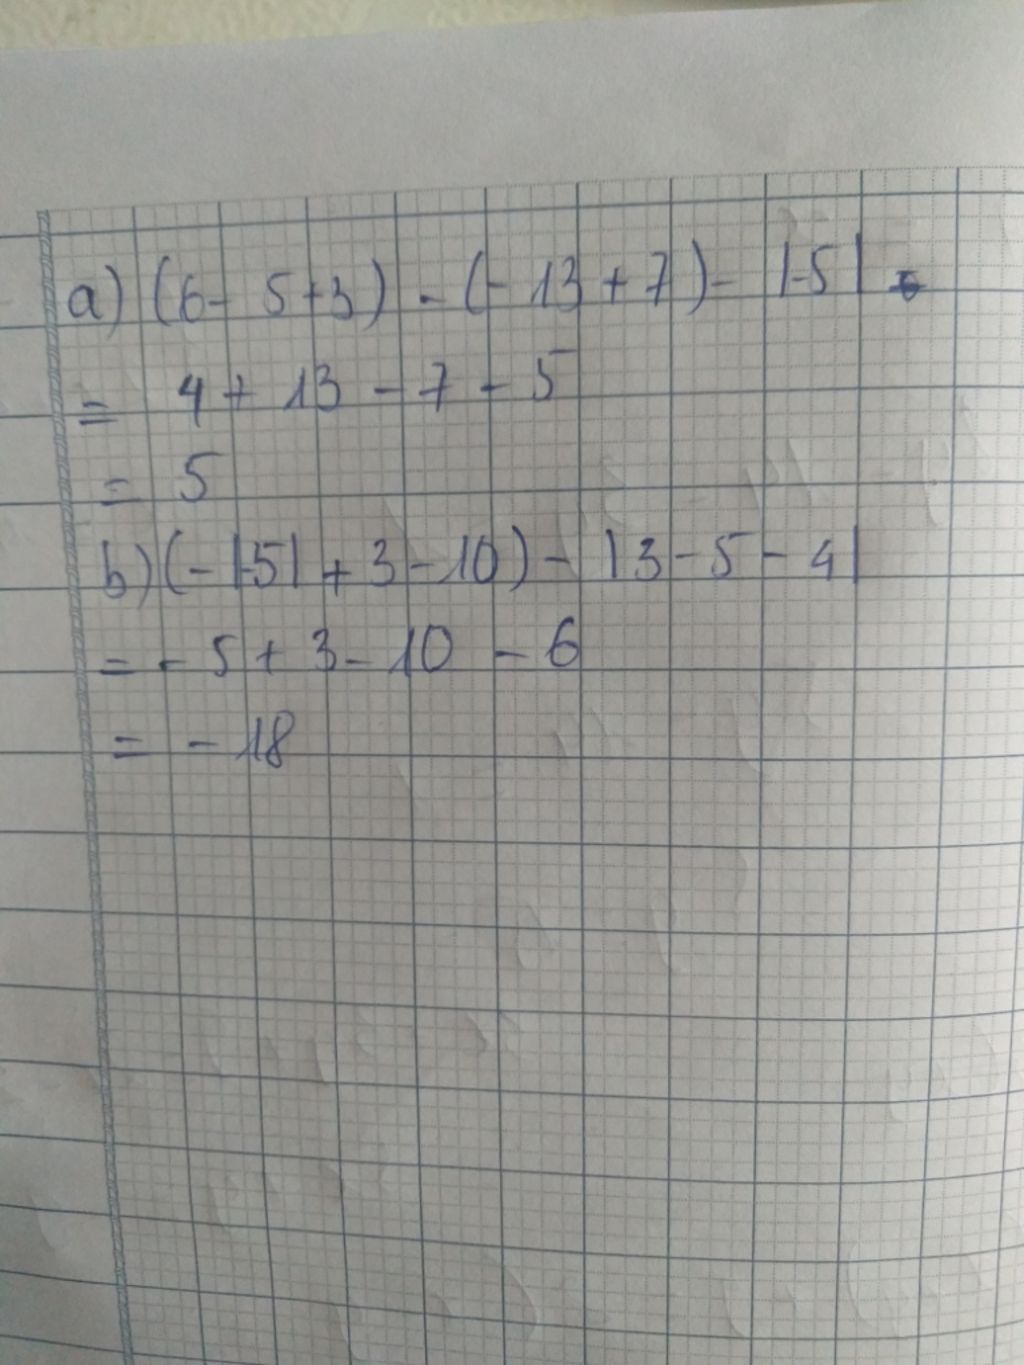 a) (6 - 5 + 3) - (- 13 + 7) - |-5|
= 4 + 13 - 7 - 5
= 5
b) (- |-5| + 3 - 10) - |3 - 5 - 4|
= - 5 + 3 - 10 - 6
= - 18